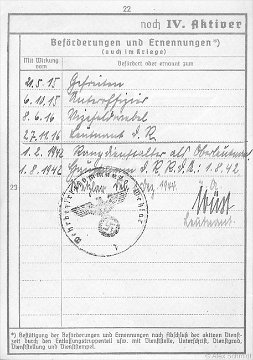 22
noch IV. Aktiver
Beförderungen und Ernennungen*)
(auch im Kriege)
Mit Wirkung vom
Befördert oder ernannt zum
20.5.15 Gefreiten
6.10.15 Unteroffizier
8.6.16 Vizefeldwebel
27.11.16 Leutnant d. R.
1.2.1942 Rangdienstalter als Oberleutnant
1.8.1942 Hauptmann d. R. R.D.A.: 1.8.42
23
*) Bestätigung der Beförderungen und Ernennungen nach Abschluß der aktiven Dienst-
zeit durch den Entlassungstruppenteil usw. mit Dienststelle, Unterschrift, Dienstgrad,
Dienststellung und Dienststempel.
Alex Schmidt